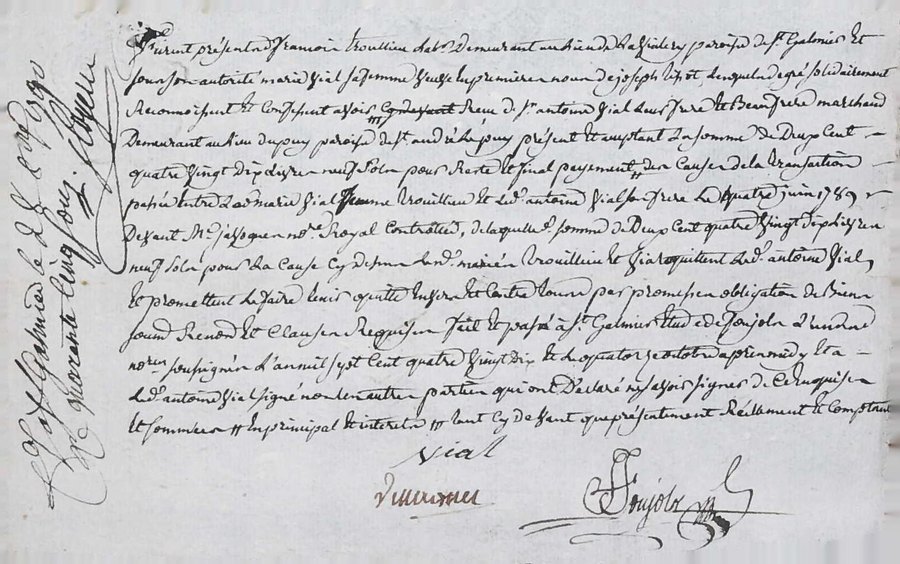 furent présentes francois trouillieu lab.r Demeurant au lieu de la paroisse de St Galmier Et
sous son autorité marie vial sa femme veuve En premieres noces de joseph lesquels de gré solidairement
Reconnoissent Et Confessent avoir Reçu de Sr antoine vial leur frere et Beaufrere marchand
Demeurant au lieu du puy paroisse de St andré le puy présent Et acceptant La somme de Deux Cent
quatre vingt Dix Livres neuf sols pour Reste et final payement des Causes de la transaction
passée Entre lade marie vial femme trouillieu Et led. antoine vial son frere Le quatre juin 1789
Devant Me no.re Royal Controllée, de laquelle somme de Deux Cent quatre vingt dix Livres
neuf sols pour La Cause Cydessus lesd. mariés trouillieu Et vial quittent Led. antoine vial,
Et promettent Le faire tenir quitte Envers Et Contre tous par promesses obligation de Biens
soum. Renon. Et Clauses Requises fait Et passé à St Galmier Etude de Poujols L'un des
no.res soussignés L'an mil sept Cent quatre vingt Dix Et le quatorze octobre après midy Et a
Led. antoine vial signé non les autres parties qui ont Déclaré ne savoir signer de Ce Enquises
Et sommées # En principal Et interets # tant Cy devant que présentement Réellement Et Comptant
vial
Poujols
a St Galmier le 28 8bre 1790
R. quarante cinq sous.